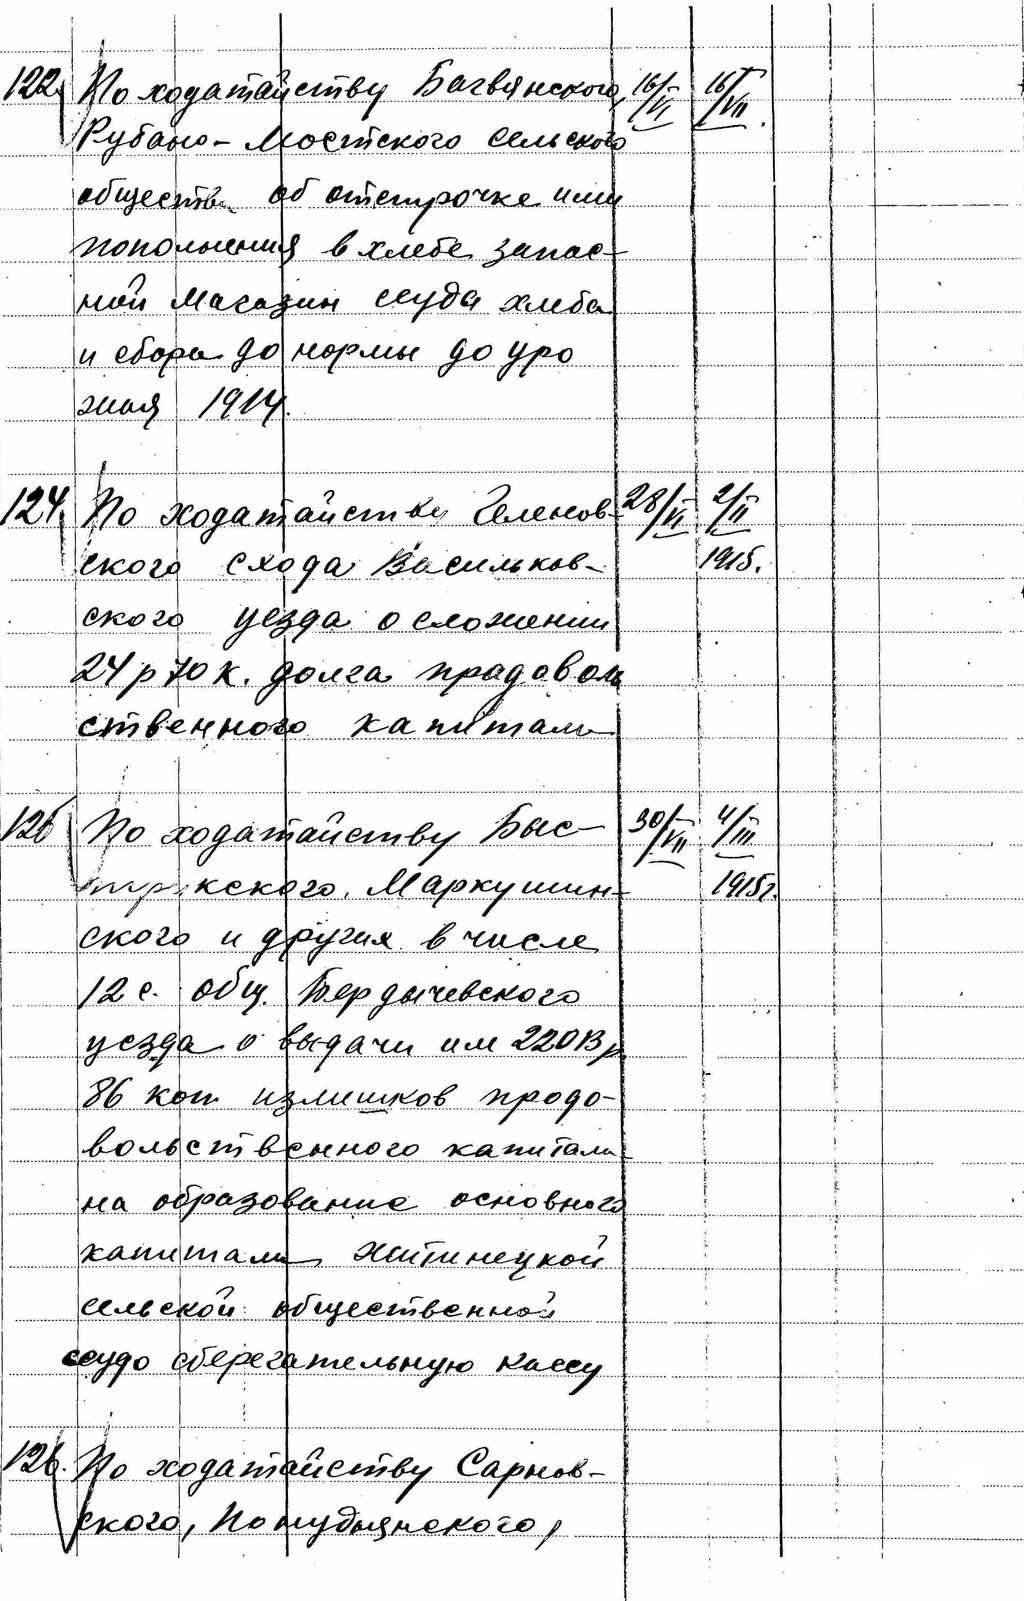 122. По ходатайству Багвянского, 16/VI 16/VII.
Рубано-Мостского сельского
обществ об отсрочке ими
пополнения в хлебо запас-
ной магазин ссуда хлеба
и сбора до нормы до уро
жая 1914.
124. По ходатайству Геленов- 28/VI 2/II
ского схода Васильков- 1915.
ского уезда о сложении
24 р 70 к. долга продоволь
ственного капитала
По ходатайству Быс- 30/VII 4/III
кского, Маркушин- 1915 г.
ского и других в числе
12 с. общ. Бердычевского
уезда о выдачи им 2203 р
86 коп излишков продо-
вольственного капитала
на образование основного
капитала Житинецкой
сельской общественной
ссудо сберегательную кассу
126. По ходатайству Сарнов-
ского,